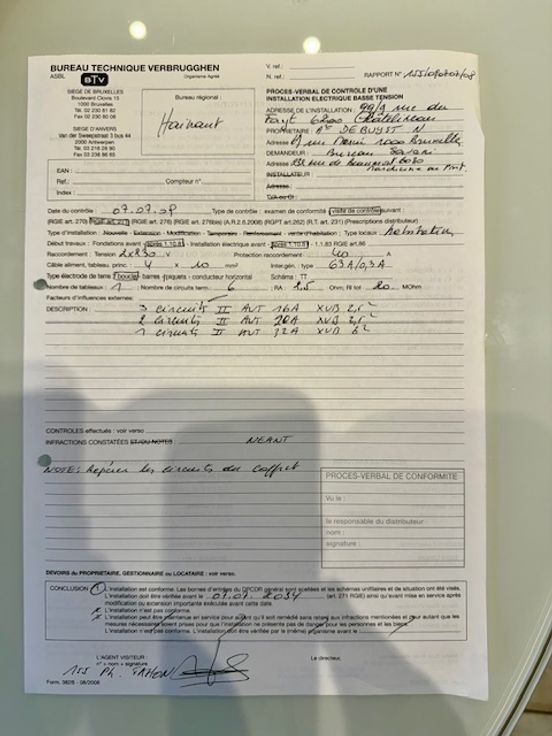 BUREAU TECHNIQUE VERBRUGGHEN
ASBL BTV Organisme Agréé
V. ref.:
N. ref.: RAPPORT N° 155/070707/08
SIEGE DE BRUXELLES
Boulevard Clovis 15
1000 Bruxelles
Tél. 02 230 81 82
Fax 02 230 80 08
SIEGE D'ANVERS
Van der Sweepstraat 3 bus 44
2000 Antwerpen
Tél. 03 216 28 90
Fax 03 238 86 65
Bureau régional:
Hainaut
EAN:
Ref.: Compteur n°:
Index:
PROCES-VERBAL DE CONTRÔLE D'UNE
INSTALLATION ELECTRIQUE BASSE TENSION
ADRESSE DE L'INSTALLATION: 99/1 rue du
Fayt 6200 Châtelineau
PROPRIETAIRE: DEBUYST N
Adresse rue 1000 Bruxelles
DEMANDEUR: Bureau
Adresse rue de Beaumont 6030
Marchienne au Pont
INSTALLATEUR:
Adresse:
Date du contrôle: 07.07.08 Type de contrôle: examen de conformité / visite de contrôle suivant:
(RGIE art. 270) RGIE art. 271 (RGIE art. 276) (RGIE art. 276bis) (A.R.2.6.2008) (RGPT art. 262) (R.T. art. 231) (Prescriptions distributeur)
Type d'installation: Nouvelle - Extension - Modification - Temporaire - Renforcement - vente d'habitation; Type locaux: Habitation
Début travaux: Fondations avant - après 1.10.81 - Installation électrique avant - après 1.10.81 - 1.1.83 RGIE art.86
Raccordement: Tension 2x230 V Protection raccordement: 40 A
Câble aliment. tableau princ.: 4 x 10 mm² Inter.gén.: type 63A/0,3A
Type électrode de terre: boucle - barres / piquets - conducteur horizontal Schéma: TT
Nombre de tableaux: 1 Nombre de circuits: 6 RA: 2.5 Ohm; RI tot: 20 MOhm
Facteurs d'influences externes:
DESCRIPTION: 3 circuits II AUT 16A XVB 2,5²
2 circuits II AUT 20A XVB 2,5²
1 circuit II AUT 32A XVB 6²
CONTROLES effectués: voir verso
INFRACTIONS CONSTATÉES ET/OU NOTES: NEANT
NOTE: Repérer les circuits du coffret
PROCES-VERBAL DE CONFORMITE
Vu le:
le responsable du distributeur:
nom:
signature:
DEVOIRS du PROPRIETAIRE, GESTIONNAIRE ou LOCATAIRE: voir verso.
CONCLUSION: 1 L'installation est conforme. Les bornes d'entrées du DPCDR général sont scellées et les schémas unifilaires et de situation ont été visés.
L'installation doit être vérifiée avant le (art. 271 RGIE) ainsi qu'avant mise en service après
modification ou extension importante exécutée avant cette date.
L'installation n'est pas conforme.
L'installation peut être maintenue en service pour autant qu'il soit remédié sans retard aux infractions mentionnées et pour autant que les
mesures nécessaires soient prises pour que l'installation ne présente pas de danger pour les personnes et les biens.
L'installation n'est pas conforme. L'installation doit être vérifiée par le (même) organisme avant le
L'AGENT VISITEUR:
n° + nom + signature
Le directeur,
155 Ph.
Form. 382/5 - 08/2006